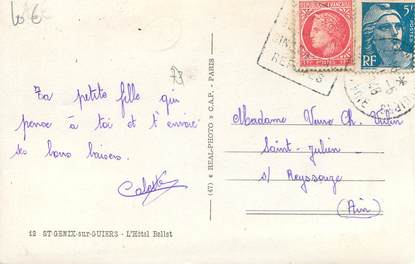 10 €
73
Ta petite fille qui
pense à toi et t'envoie
ses bons baisers.
Celeste
12 ST GENIX-sur-GUIERS - L'Hôtel Bellet
(47) « REAL-PHOTO » C.A.P. - PARIS
RF
POSTES
5F
Madame Vuno Ch.
Saint-Julien
s/ Reyssouze
(Ain)